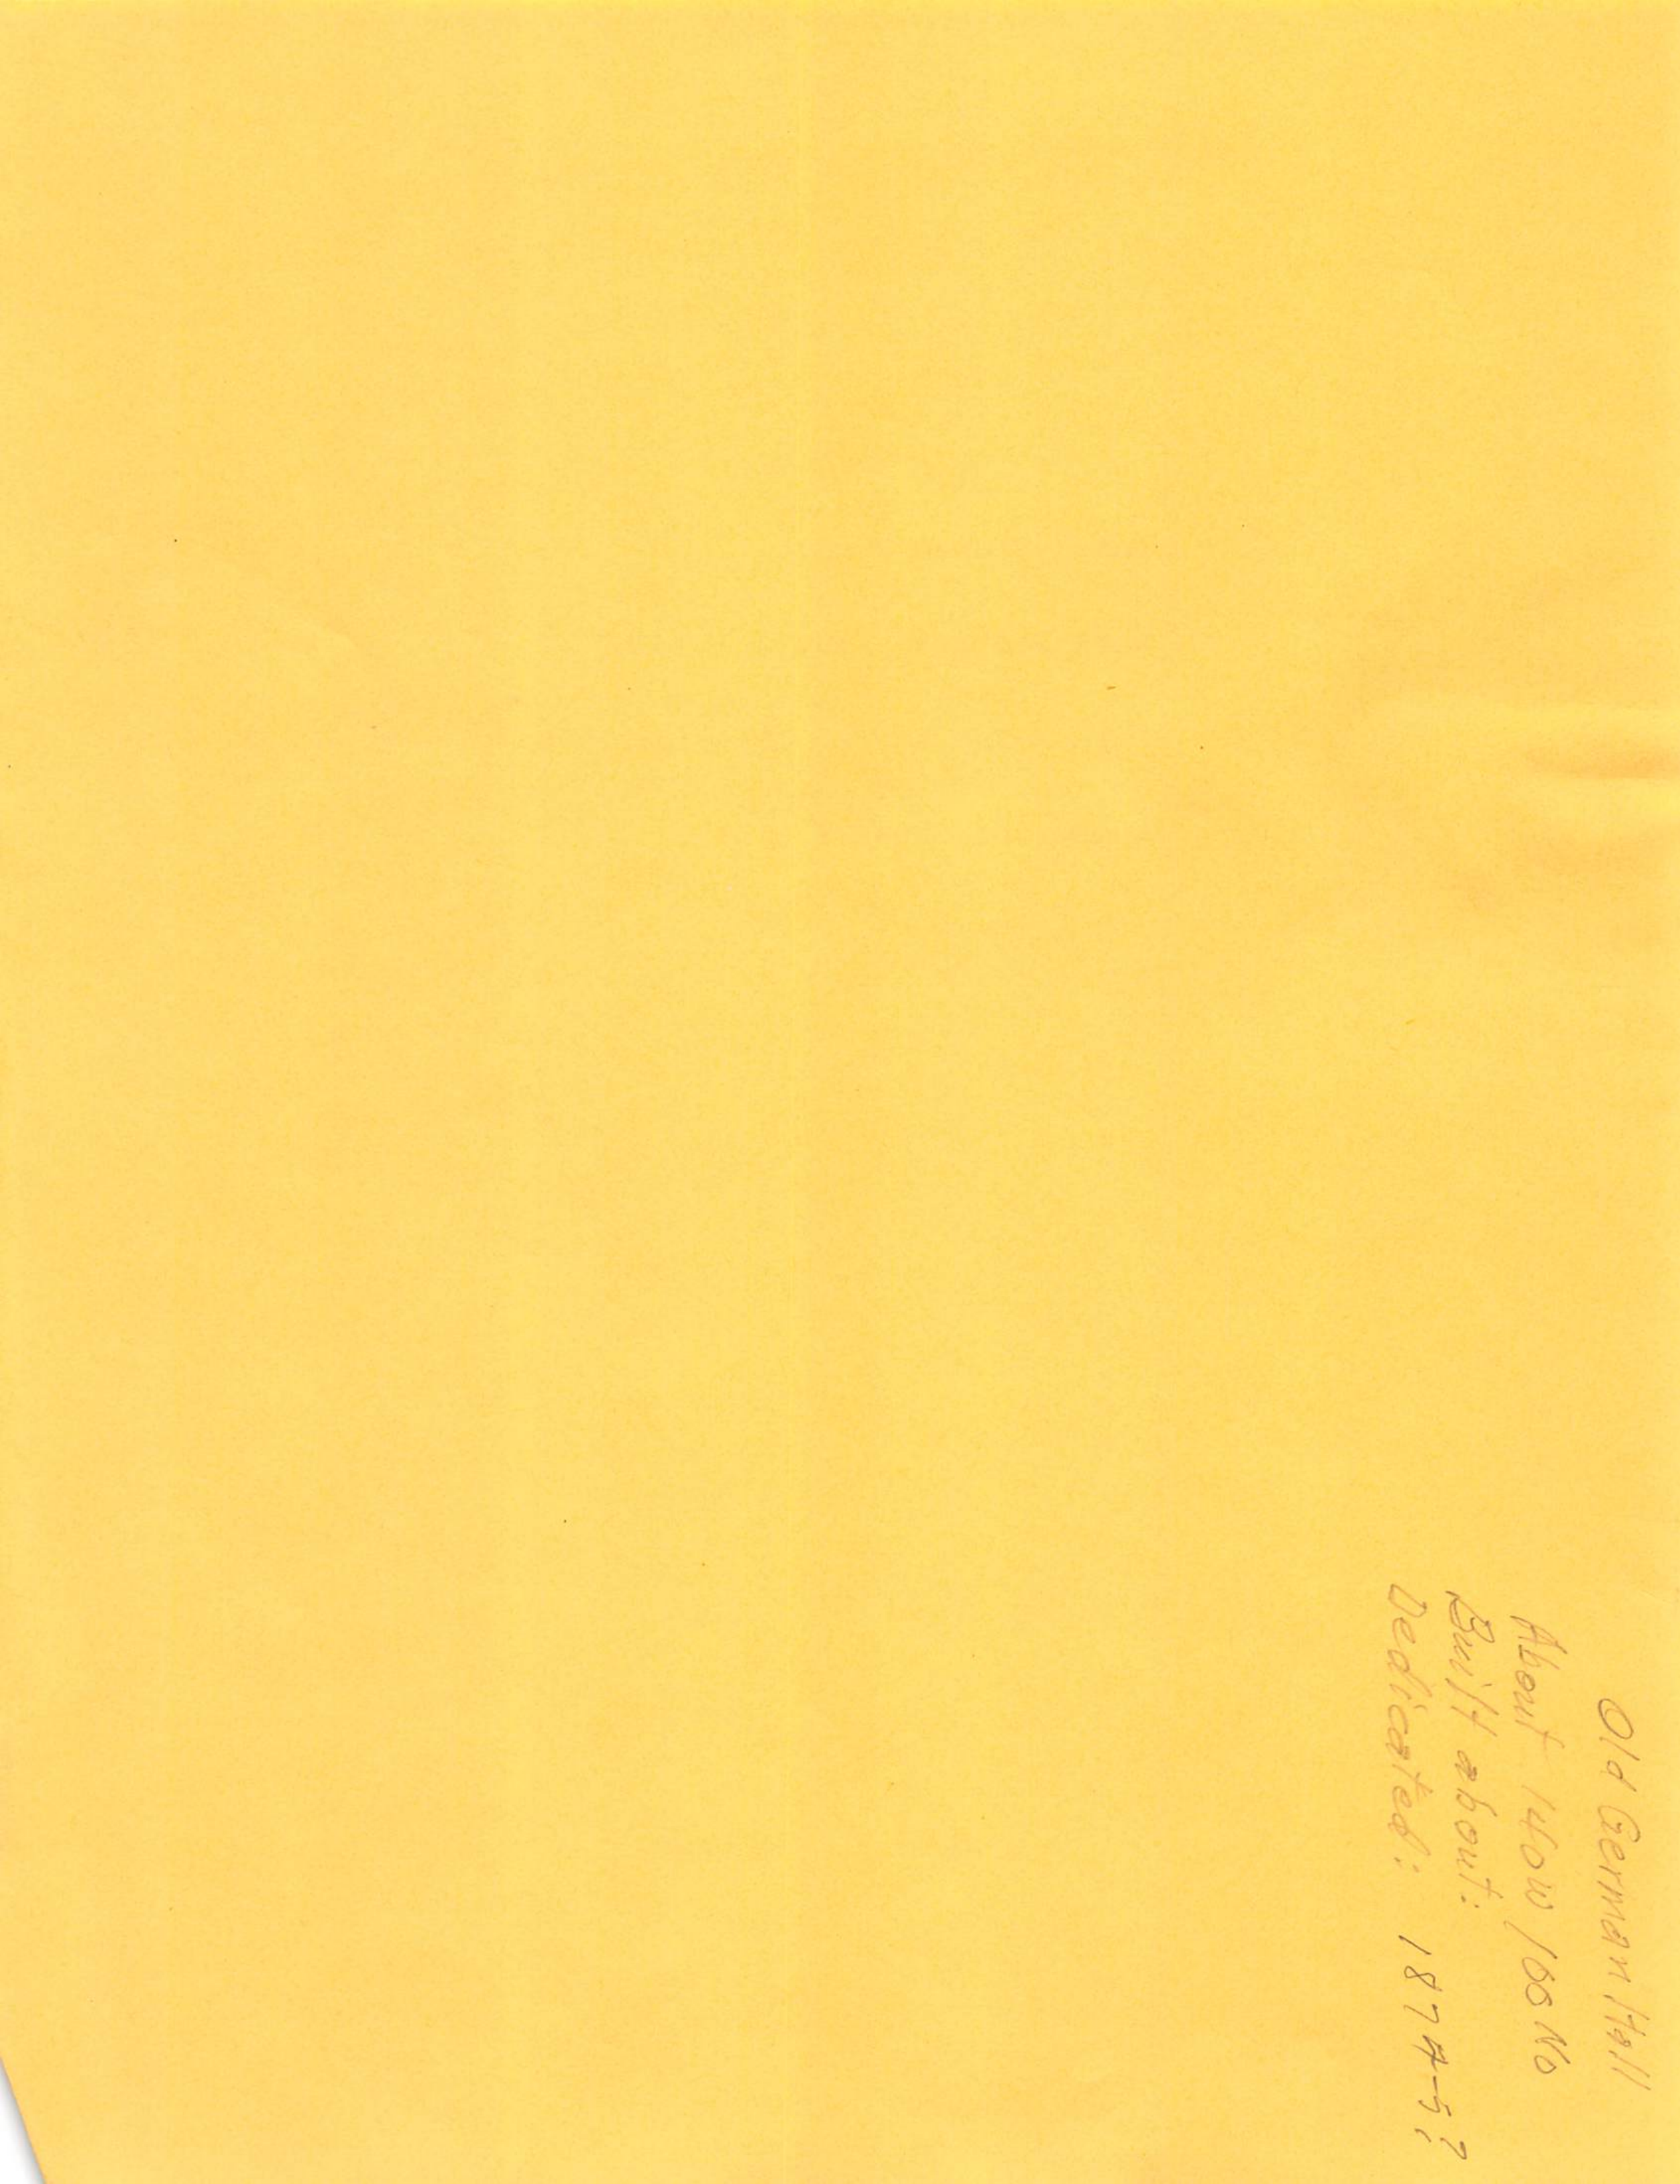 Old German Hall
About 140 W 100 No
Built about:
Dedicated: 1874-5?